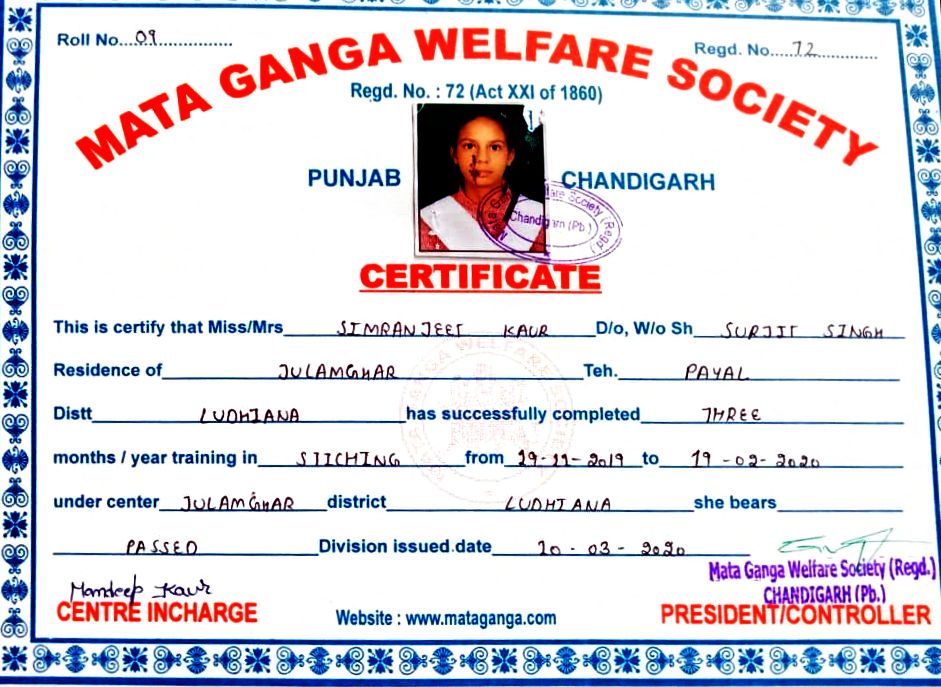 Roll No...09................
Regd. No....72..............
MATA GANGA WELFARE SOCIETY
Regd. No. : 72 (Act XXI of 1860)
PUNJAB CHANDIGARH
Welfare Society (Regd.)
Chandigarh (Pb.)
CERTIFICATE
This is certify that Miss/Mrs SIMRANJEET KAUR D/o, W/o Sh SURJIT SINGH
Residence of JULAMGHAR Teh. PAYAL
Distt LUDHIANA has successfully completed THREE
months / year training in STICHING from 19-11-2019 to 19-02-2020
under center JULAMGHAR district LUDHIANA she bears
PASSED Division issued date 10-03-2020
Mandeep Kaur
CENTRE INCHARGE
Website : www.mataganga.com
Mata Ganga Welfare Society (Regd.)
CHANDIGARH (Pb.)
PRESIDENT/CONTROLLER